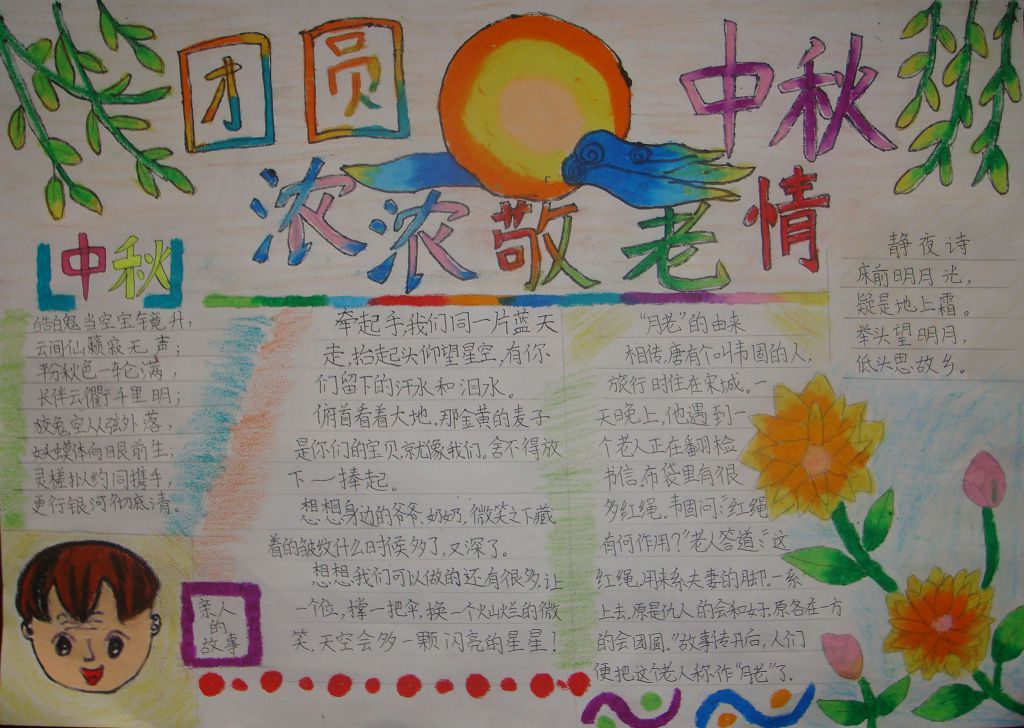 团圆
中秋
浓浓敬老情
中秋
皓魄当空宝镜升,
云间仙籁寂无声;
平分秋色一轮满,
长伴云衢千里明;
狡兔空从弦外落,
妖蟆休向眼前生;
灵槎拟约同携手,
更行银河彻底清。
亲人
的
故事
牵起手,我们同一片蓝天
走,抬起头仰望星空,有你
们留下的汗水和泪水。
俯首看着大地,那金黄的麦子
是你们的宝贝,就像我们。舍不得放
下一捧起。
想想身边的爷爷.奶奶,微笑之下藏
着的皱纹什么时候多了,又深了。
想想我们可以做的还有很多,让
一个位,撑一把伞,换一个灿烂的微
笑,天空会多一颗闪亮的星星!
“月老”的由来
相传,唐有个叫韦固的人,
旅行时住在宋城。一
天晚上,他遇到一
个老人正在翻检
书信,布袋里有很
多红绳。韦固问:“红绳
有何作用?”老人答道:“这
红绳,用来系夫妻的脚.一系
上去,原是仇人的会和好;原各在一方
的会团圆。”故事传开后,人们
便把这个老人称作“月老”了.
静夜诗
床前明月光,
疑是地上霜。
举头望明月,
低头思故乡。